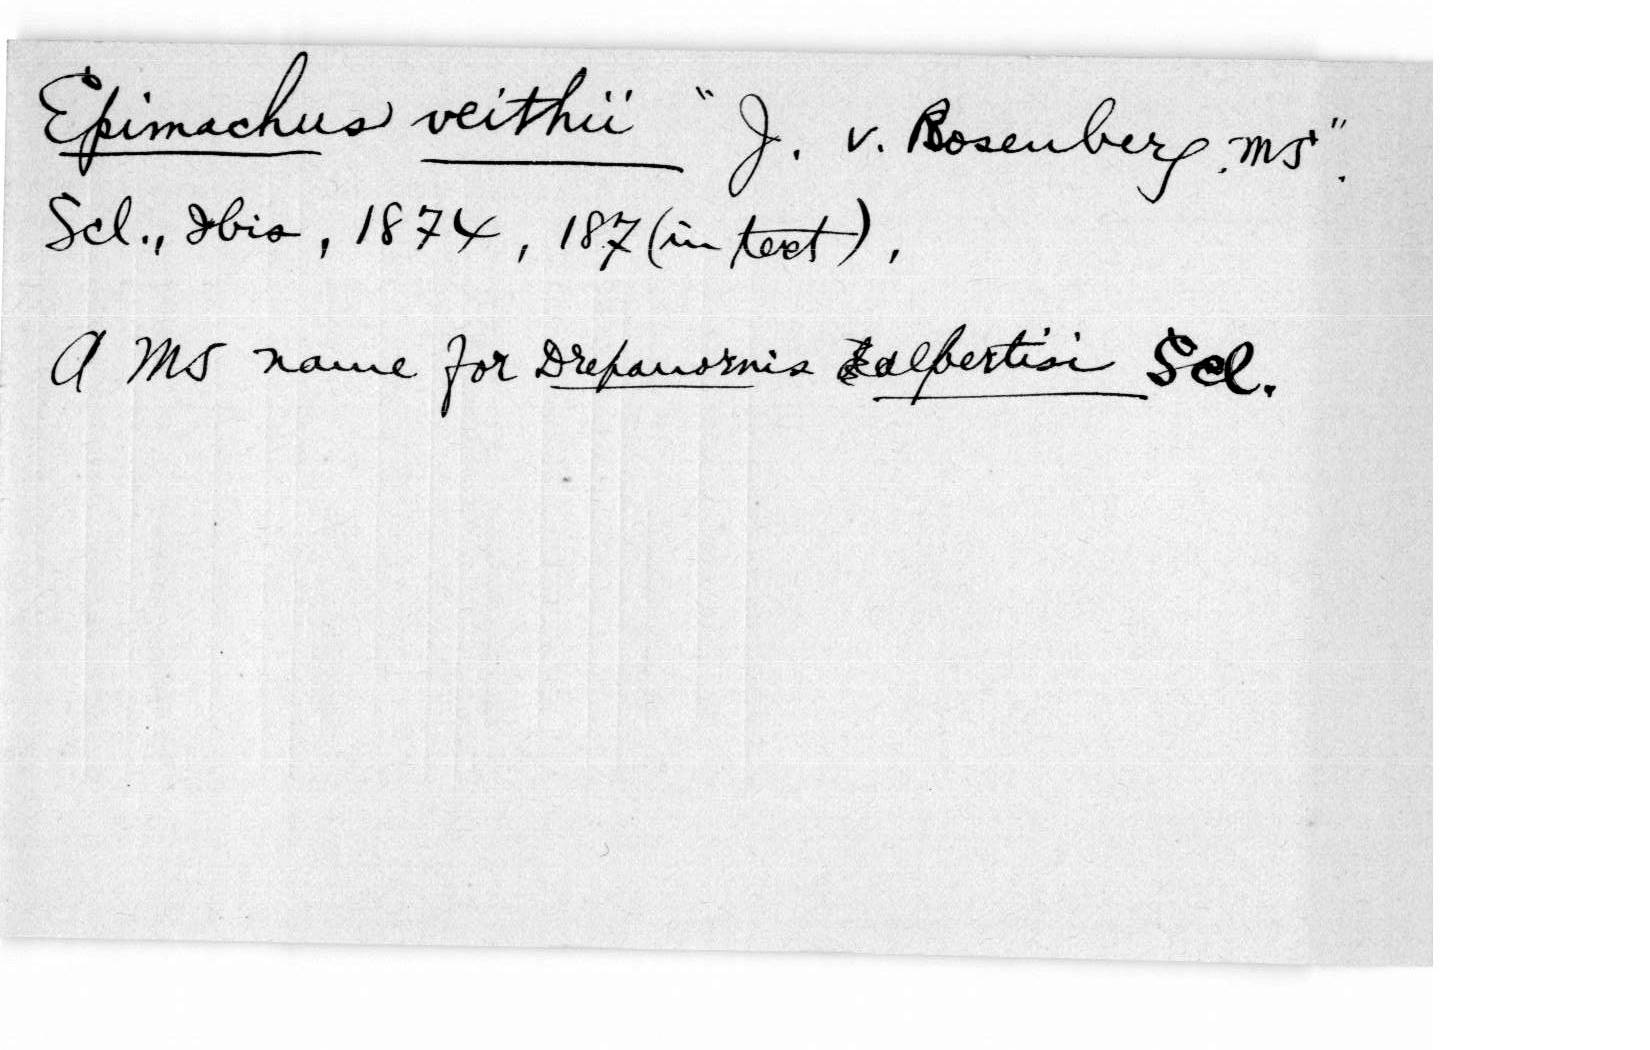 Epimachus veithii "J. v. Rosenberg. MS".
Scl., Ibis, 1874, 187 (in text),
A MS name for Drepanornis albertisi Scl.